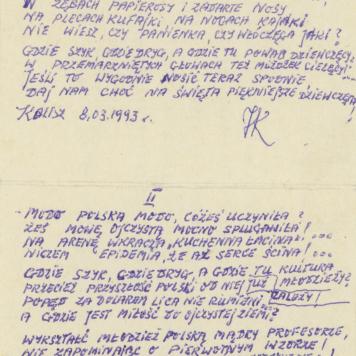 W ZĘBACH PAPIEROSY I ZADARTE NOSY,
NA PLECACH KUFAJKI, NA NOGACH KAJAKI
NIE WIESZ, CZY PANIENKA, CZY WŁÓCZĘGA JAKI?
GDZIE SZYK, GDZIE DRYG, A GDZIE TU POWAB DZIEWCZĘCY?
W PRZEMARZNIĘTYCH GŁOWACH TEŻ MÓŻDŻEK CIELĘCY!
JEŚLIŚ TO WYGODNIE NOSIĆ TERAZ SPODNIE
DAJ NAM CHOĆ NA ŚWIĘTA PIĘKNIEJSZE DZIEWCZĘTA!
KALISZ 8.03.1993 r.
II
MODO POLSKA MODO, CÓŻEŚ UCZYNIŁA?
ŻEŚ MOWĘ OJCZYSTĄ MOCNO SPLUGAWIŁA!
NA ARENĘ WKRACZA „KUCHENNA ŁACINA"...
NICZEM EPIDEMIA, ŻE AŻ SERCE ŚCINA!...
GDZIE SZYK, GDZIE DRYG, A GDZIE TU KULTURA
PRZECIEŻ PRZYSZŁOŚĆ POLSKI OD NIEJ TUŻ MŁODZIEŻY
POPĘD ZA DOLAREM LICA NIE RUMIENI ZALEŻY!
A GDZIE JEST MIŁOŚĆ TO OJCZYSTEJ ZIEMI?
WYKSZTAŁĆ MŁODZIEŻ POLSKĄ MĄDRY PROFESORZE,
NIE ZAPOMINAJĄC O PIERWOTNYM WZORZE!